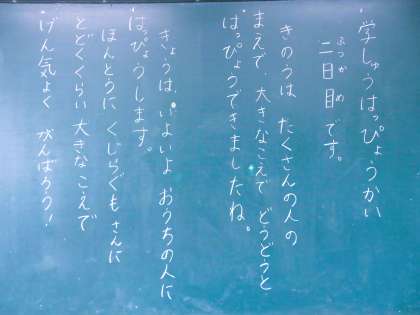 学しゅうはっぴょうかい
二日目です。
ふつか め
きのうは たくさんの人の
まえで、大きなこえで どうどうと
はっぴょうできましたね。
きょうは、いよいよ おうちの人に
はっぴょうします。
ほんとうに くじらぐも さんに
とどくくらい 大きなこえで
げん気よく がんばろう!